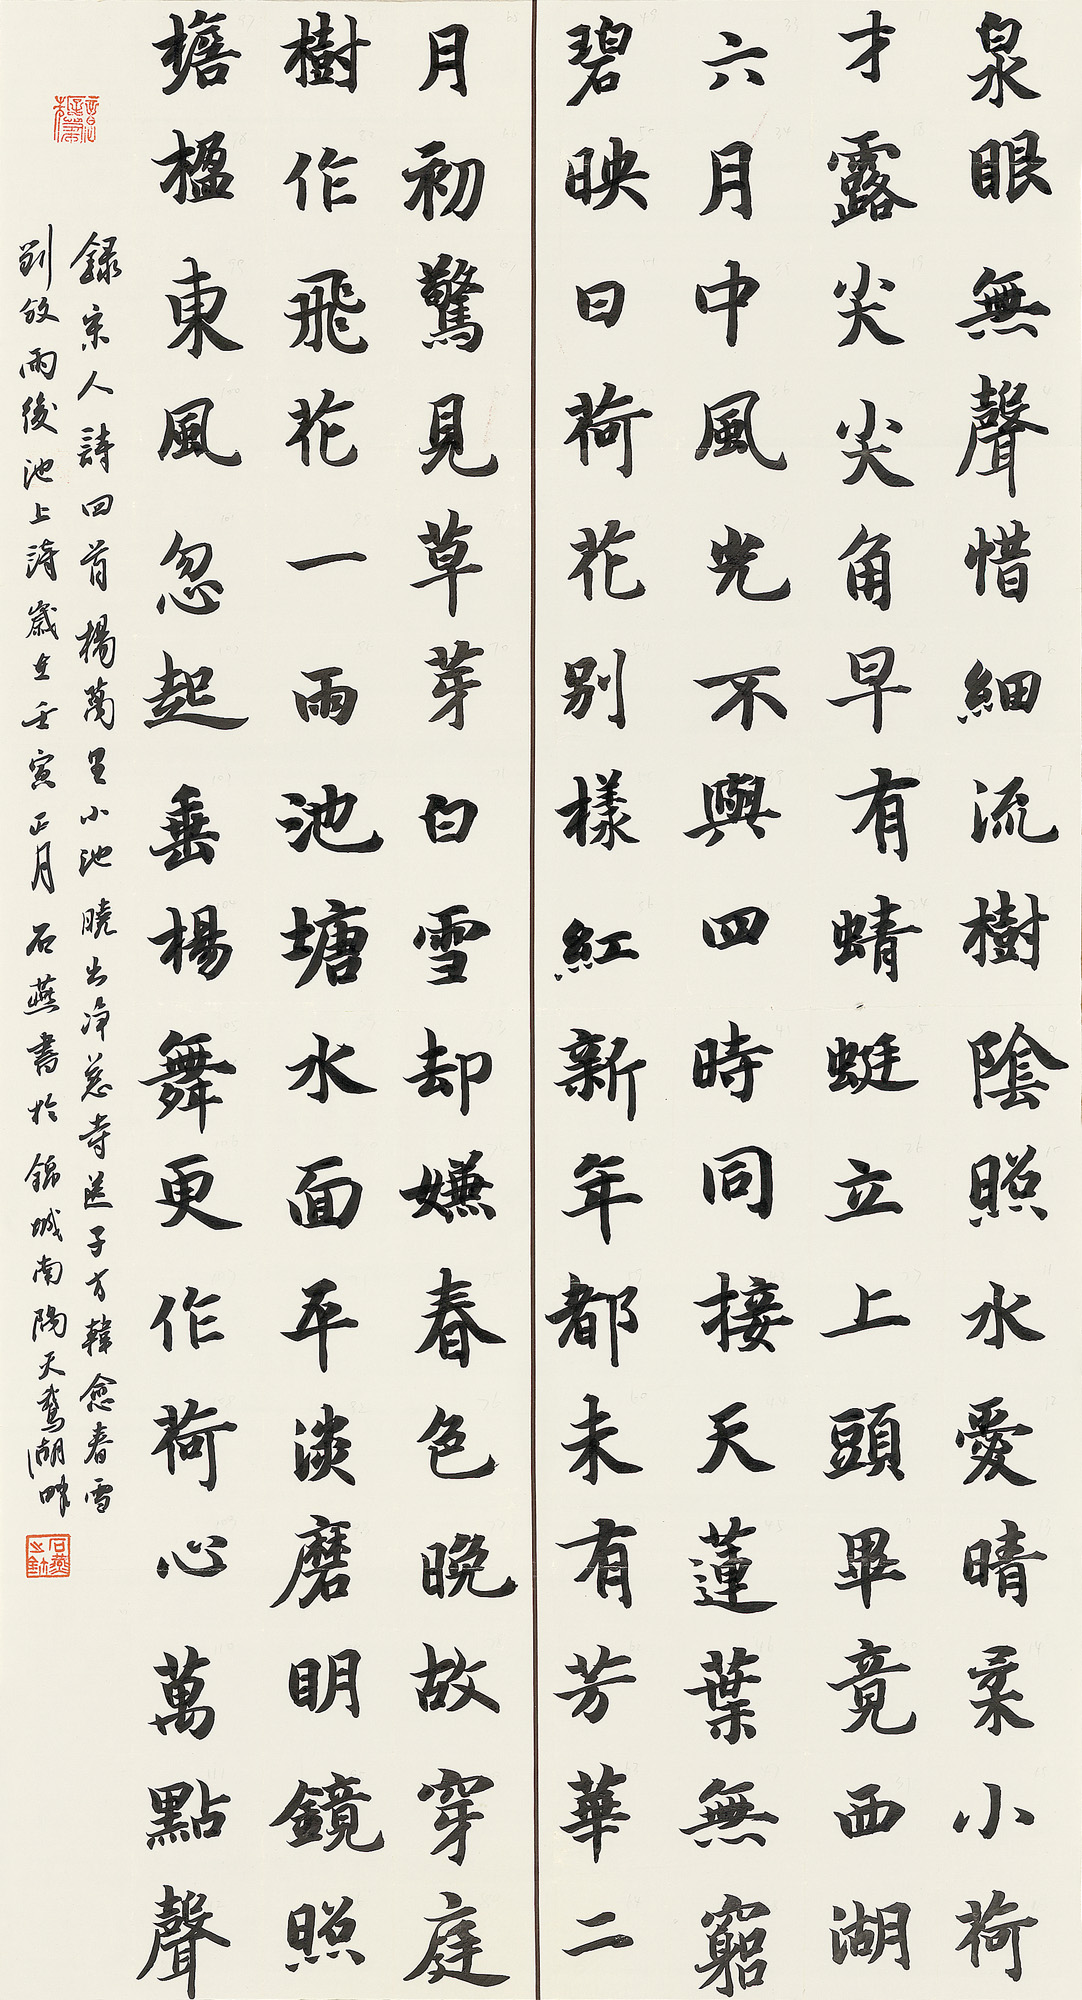 泉眼無聲惜細流樹陰照水愛晴柔小荷
才露尖尖角早有蜻蜓立上頭畢竟西湖
六月中風光不與四時同接天蓮葉無窮
碧映日荷花別樣紅新年都未有芳華二
月初驚見草芽白雪却嫌春色晚故穿庭
樹作飛花一雨池塘水面平淡磨明鏡照
檐楹東風忽起垂楊舞更作荷心萬點聲
錄宋人詩四首楊萬里小池曉出净慈寺送子方韓愈春雪
劉攽雨後池上詩歲在壬寅正月石燕書於錦城南陽天鵞湖畔